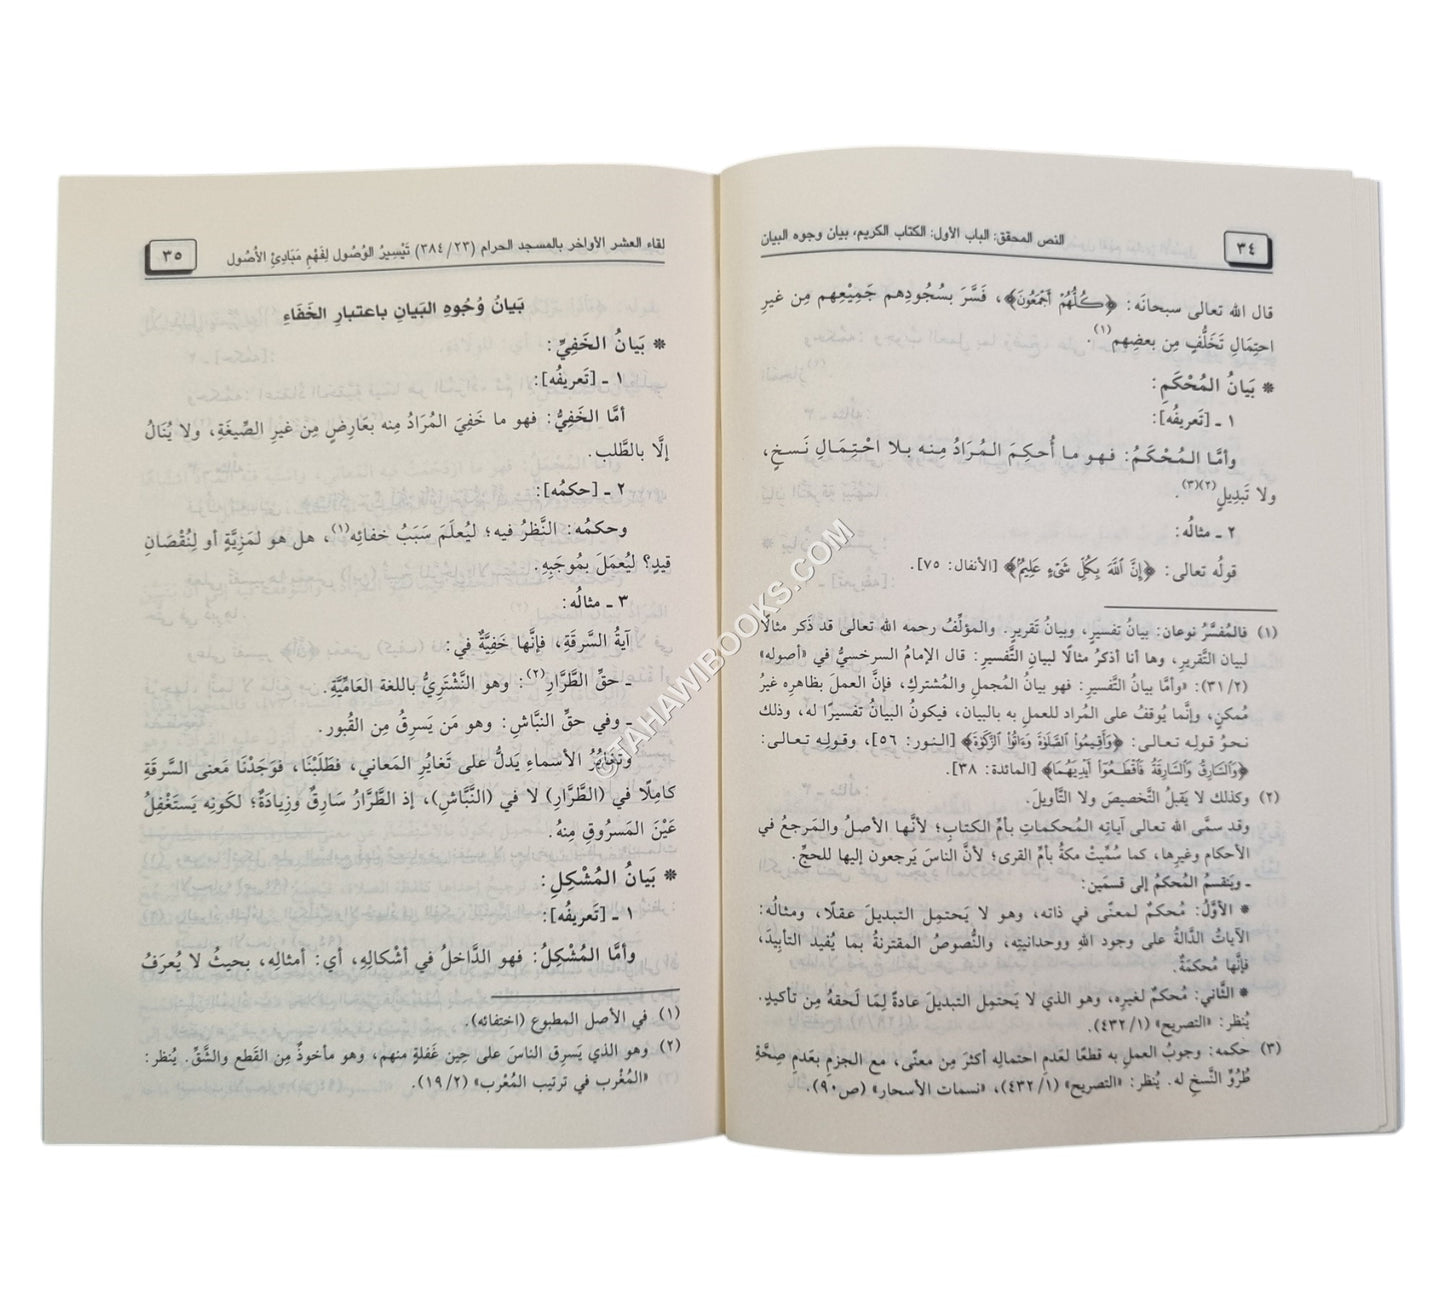 ٣٤
النص المحقق: الباب الأول: الكتاب الكريم، بيان وجوه البيان
قال الله تعالى سبحانَه: ﴿كُلُّهُمْ أَجْمَعُونَ﴾، فَسَّرَ بسُجُودِهم جَمِيْعِهم مِن غيرِ
احتِمَالِ تَخَلُّفٍ مِن بعضِهم(١).
* بَيَانُ المُحْكَمِ:
١ ـ [تَعريفُه]:
وأمَّا المُحْكَمُ: فهو ما أُحكِمَ المُرَادُ مِنه بلا احْتِمَالِ نَسخٍ،
ولا تَبدِيلٍ(٢)(٣).
٢ ـ مثالُه:
قولُه تعالى: ﴿إِنَّ ٱللَّهَ بِكُلِّ شَىْءٍ عَلِيمٌ﴾ [الأنفال: ٧٥].
(١) فالمُفسَّرُ نوعان: بيانُ تفسيرٍ، وبيانُ تقريرٍ. والمؤلِّفُ رحمه الله تعالى قد ذَكر مثالًا
لبيان التَّقريرِ، وها أنا أذكرُ مثالًا لبيانِ التَّفسيرِ: قال الإمامُ السرخسيُّ في «أصوله»
(٣١/٢): «وأمَّا بيانُ التَّفسيرِ: فهو بيانُ المُجملِ والمُشتركِ، فإنَّ العملَ بظاهرِه غيرُ
مُمكنٍ، وإنَّما يُوقفُ على المُراد للعملِ به بالبيان، فيكونُ البيانُ تفسيرًا له، وذلك
نحوُ قولِه تعالى: ﴿وَأَقِيمُوا۟ ٱلصَّلَوٰةَ وَءَاتُوا۟ ٱلزَّكَوٰةَ﴾ [النور: ٥٦]، وقولِه تعالى:
﴿وَٱلسَّارِقُ وَٱلسَّارِقَةُ فَٱقْطَعُوٓا۟ أَيْدِيَهُمَا﴾ [المائدة: ٣٨].
(٢) وكذلك لا يَقبلُ التَّخصيصَ ولا التَّأويلَ.
وقد سمَّى الله تعالى آياتِه المُحكماتِ بأمِّ الكتابِ؛ لأنَّها الأصلُ والمَرجعُ في
الأحكامِ وغيرِها، كما سُمِّيتْ مكةُ بأمِّ القرى؛ لأنَّ الناسَ يَرجعون إليها للحجِّ.
ـ ويَنقسمُ المُحكمُ إلى قسمَين:
* الأوَّلُ: مُحكمٌ لمعنًى في ذاته، وهو لا يَحتمِل التبديلَ عقلًا، ومثالُه:
الآياتُ الدَّالةُ على وجود اللهِ ووحدانيتِه، والنُّصوصُ المقترنةُ بما يُفيد التأبِيدَ،
فإنَّها مُحكمَةٌ.
* الثَّاني: مُحكمٌ لغيرِه، وهو الذي لا يَحتمِل التبديلَ عادةً لِمَا لَحقهُ مِن تأكيدٍ.
يُنظر: «التصريح» (٤٣٢/١).
(٣) حكمه: وجوبُ العملِ به قطعًا لعَدمِ احتمالِه أكثرَ مِن معنًى، مع الجزمِ بعَدمِ صِحَّةِ
طُرُوِّ النَّسخِ له. يُنظر: «التصريح» (٤٣٢/١)، «نسمات الأسحار» (ص٩٠).
لقاء العشر الأواخر بالمسجد الحرام (٣٨٤/٢٣) تَيْسِيرُ الوُصُول لِفَهْمِ مَبَادِئِ الأُصُول
٣٥
بَيَانُ وُجُوهِ البَيانِ باعتبارِ الخَفَاءِ
* بَيَانُ الخَفِيِّ:
١ ـ [تَعريفُه]:
أمَّا الخَفِيُّ: فهو ما خَفِيَ المُرَادُ مِنه بعَارِضٍ مِن غيرِ الصِّيغَةِ، ولا يُنَالُ
إلَّا بالطَّلب.
٢ ـ [حكمُه]:
وحكمُه: النَّظرُ فيه؛ ليُعلَمَ سَبَبُ خفائِه(١)، هل هو لمَزِيَّةٍ أو لِنُقْصَانِ
قيدٍ؟ ليُعمَلَ بمُوجَبِهِ.
٣ ـ مثالُه:
آيةُ السرقَةِ، فإنَّها خَفِيَّةٌ في:
ـ حقِّ الطَّرَّارِ(٢): وهو النَّشْتَرِيُّ باللغة العَامِّيَّةِ.
ـ وفي حقِّ النبَّاشِ: وهو مَن يَسرِقُ مِن القُبورِ.
وتَغايُرُ الأسماءِ يَدلُّ على تَغايُرِ المَعاني، فطَلَبْنَا، فوَجَدْنَا مَعنى السرقَةِ
كامِلًا في (الطَّرَّارِ) لا في (النَّبَّاشِ)، إذ الطَّرَّارُ سَارِقٌ وزِيادَةٌ؛ لكونِه يَستَغْفِلُ
عَيْنَ المَسرُوقِ مِنهُ.
* بَيَانُ المُشْكِلِ:
١ ـ [تَعريفُه]:
وأمَّا المُشْكِلُ: فهو الدَّاخلُ في أشْكالِهِ، أي: أمثالِه، بحيثُ لا يُعرَفُ
(١) في الأصل المطبوع (اختفائه).
(٢) وهو الذي يَسرِق الناسَ على حِين غَفلةٍ منهم، وهو مأخوذٌ مِن القَطع والشَّقِّ. يُنظر:
«المُغْرب في ترتيب المُعْرب» (١٩/٢).
© TAHAWIBOOKS.COM